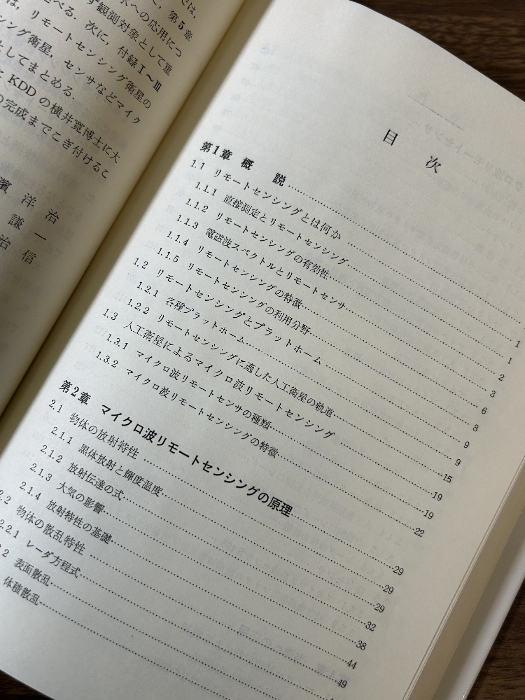 では,
第5章
す観測対象として重
へへの応用につ
べる. 次に, 付録I〜Ⅲ
は, リモートセンシング衛星の
ング衛星, センサなどマイク
としてまとめる.
KDDの横井寛博士に大
の完成までこぎ付けるこ
濱 洋治
謙一
治信
目 次
第1章 概 説
1.1 リモートセンシングとは何か 1
1.1.1 直接測定とリモートセンシング 1
1.1.2 リモートセンシングの有効性 2
1.1.3 電磁波スペクトルとリモートセンサ 3
1.1.4 リモートセンシングの特徴 6
1.1.5 リモートセンシングの利用分野 8
1.2 リモートセンシングとプラットホーム 9
1.2.1 各種プラットホーム 9
1.2.2 リモートセンシングに適した人工衛星の軌道 15
1.3 人工衛星によるマイクロ波リモートセンシング 19
1.3.1 マイクロ波リモートセンサの種類 19
1.3.2 マイクロ波リモートセンシングの特徴 22
第2章 マイクロ波リモートセンシングの原理
2.1 物体の放射特性 29
2.1.1 黒体放射と輝度温度 29
2.1.2 放射伝達の式 29
2.1.3 大気の影響 32
2.1.4 放射特性の基礎 38
2.2 物体の散乱特性 44
2.2.1 レーダ方程式 49
2 表面散乱
体積散乱